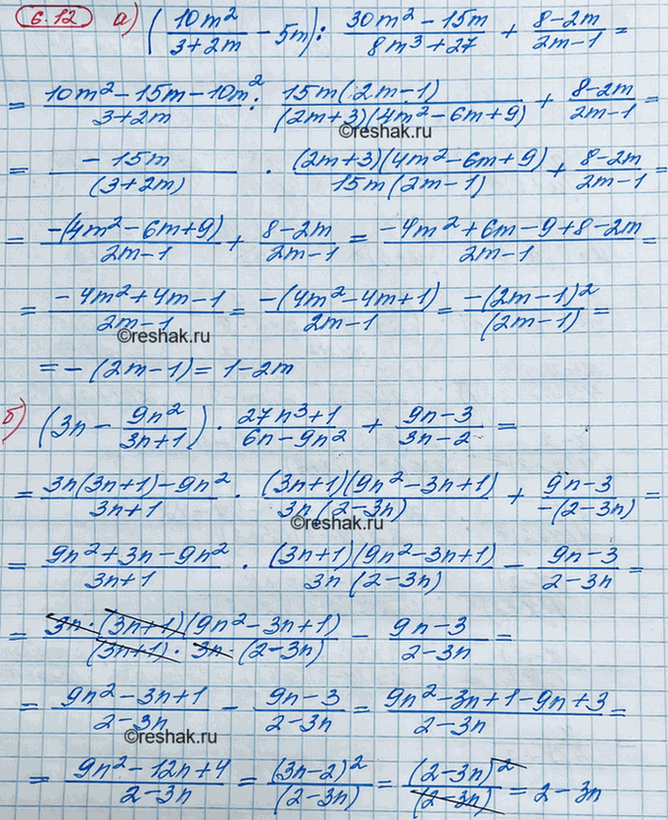 6.12 а) (10m²/(3+2m) − 5m) : (30m²−15m)/(8m³+27) + (8−2m)/(2m−1) =
= (10m²−15m−10m²)/(3+2m) : 15m(2m−1)/((2m+3)(4m²−6m+9)) + (8−2m)/(2m−1) =
©reshak.ru
= −15m/(3+2m) · (2m+3)(4m²−6m+9)/(15m(2m−1)) + (8−2m)/(2m−1) =
= −(4m²−6m+9)/(2m−1) + (8−2m)/(2m−1) = (−4m²+6m−9+8−2m)/(2m−1) =
= (−4m²+4m−1)/(2m−1) = −(4m²−4m+1)/(2m−1) = −(2m−1)²/(2m−1) =
©reshak.ru
= −(2m−1) = 1−2m
б) (3n − 9n²/(3n+1)) · (27n³+1)/(6n−9n²) + (9n−3)/(3n−2) =
= (3n(3n+1)−9n²)/(3n+1) · (3n+1)(9n²−3n+1)/(3n(2−3n)) + (9n−3)/(−(2−3n)) =
©reshak.ru
= (9n²+3n−9n²)/(3n+1) · (3n+1)(9n²−3n+1)/(3n(2−3n)) − (9n−3)/(2−3n) =
= 3n·(3n+1)(9n²−3n+1)/((3n+1)·3n·(2−3n)) − (9n−3)/(2−3n) =
= (9n²−3n+1)/(2−3n) − (9n−3)/(2−3n) = (9n²−3n+1−9n+3)/(2−3n) =
©reshak.ru
= (9n²−12n+4)/(2−3n) = (3n−2)²/(2−3n) = (2−3n)²/(2−3n) = 2−3n